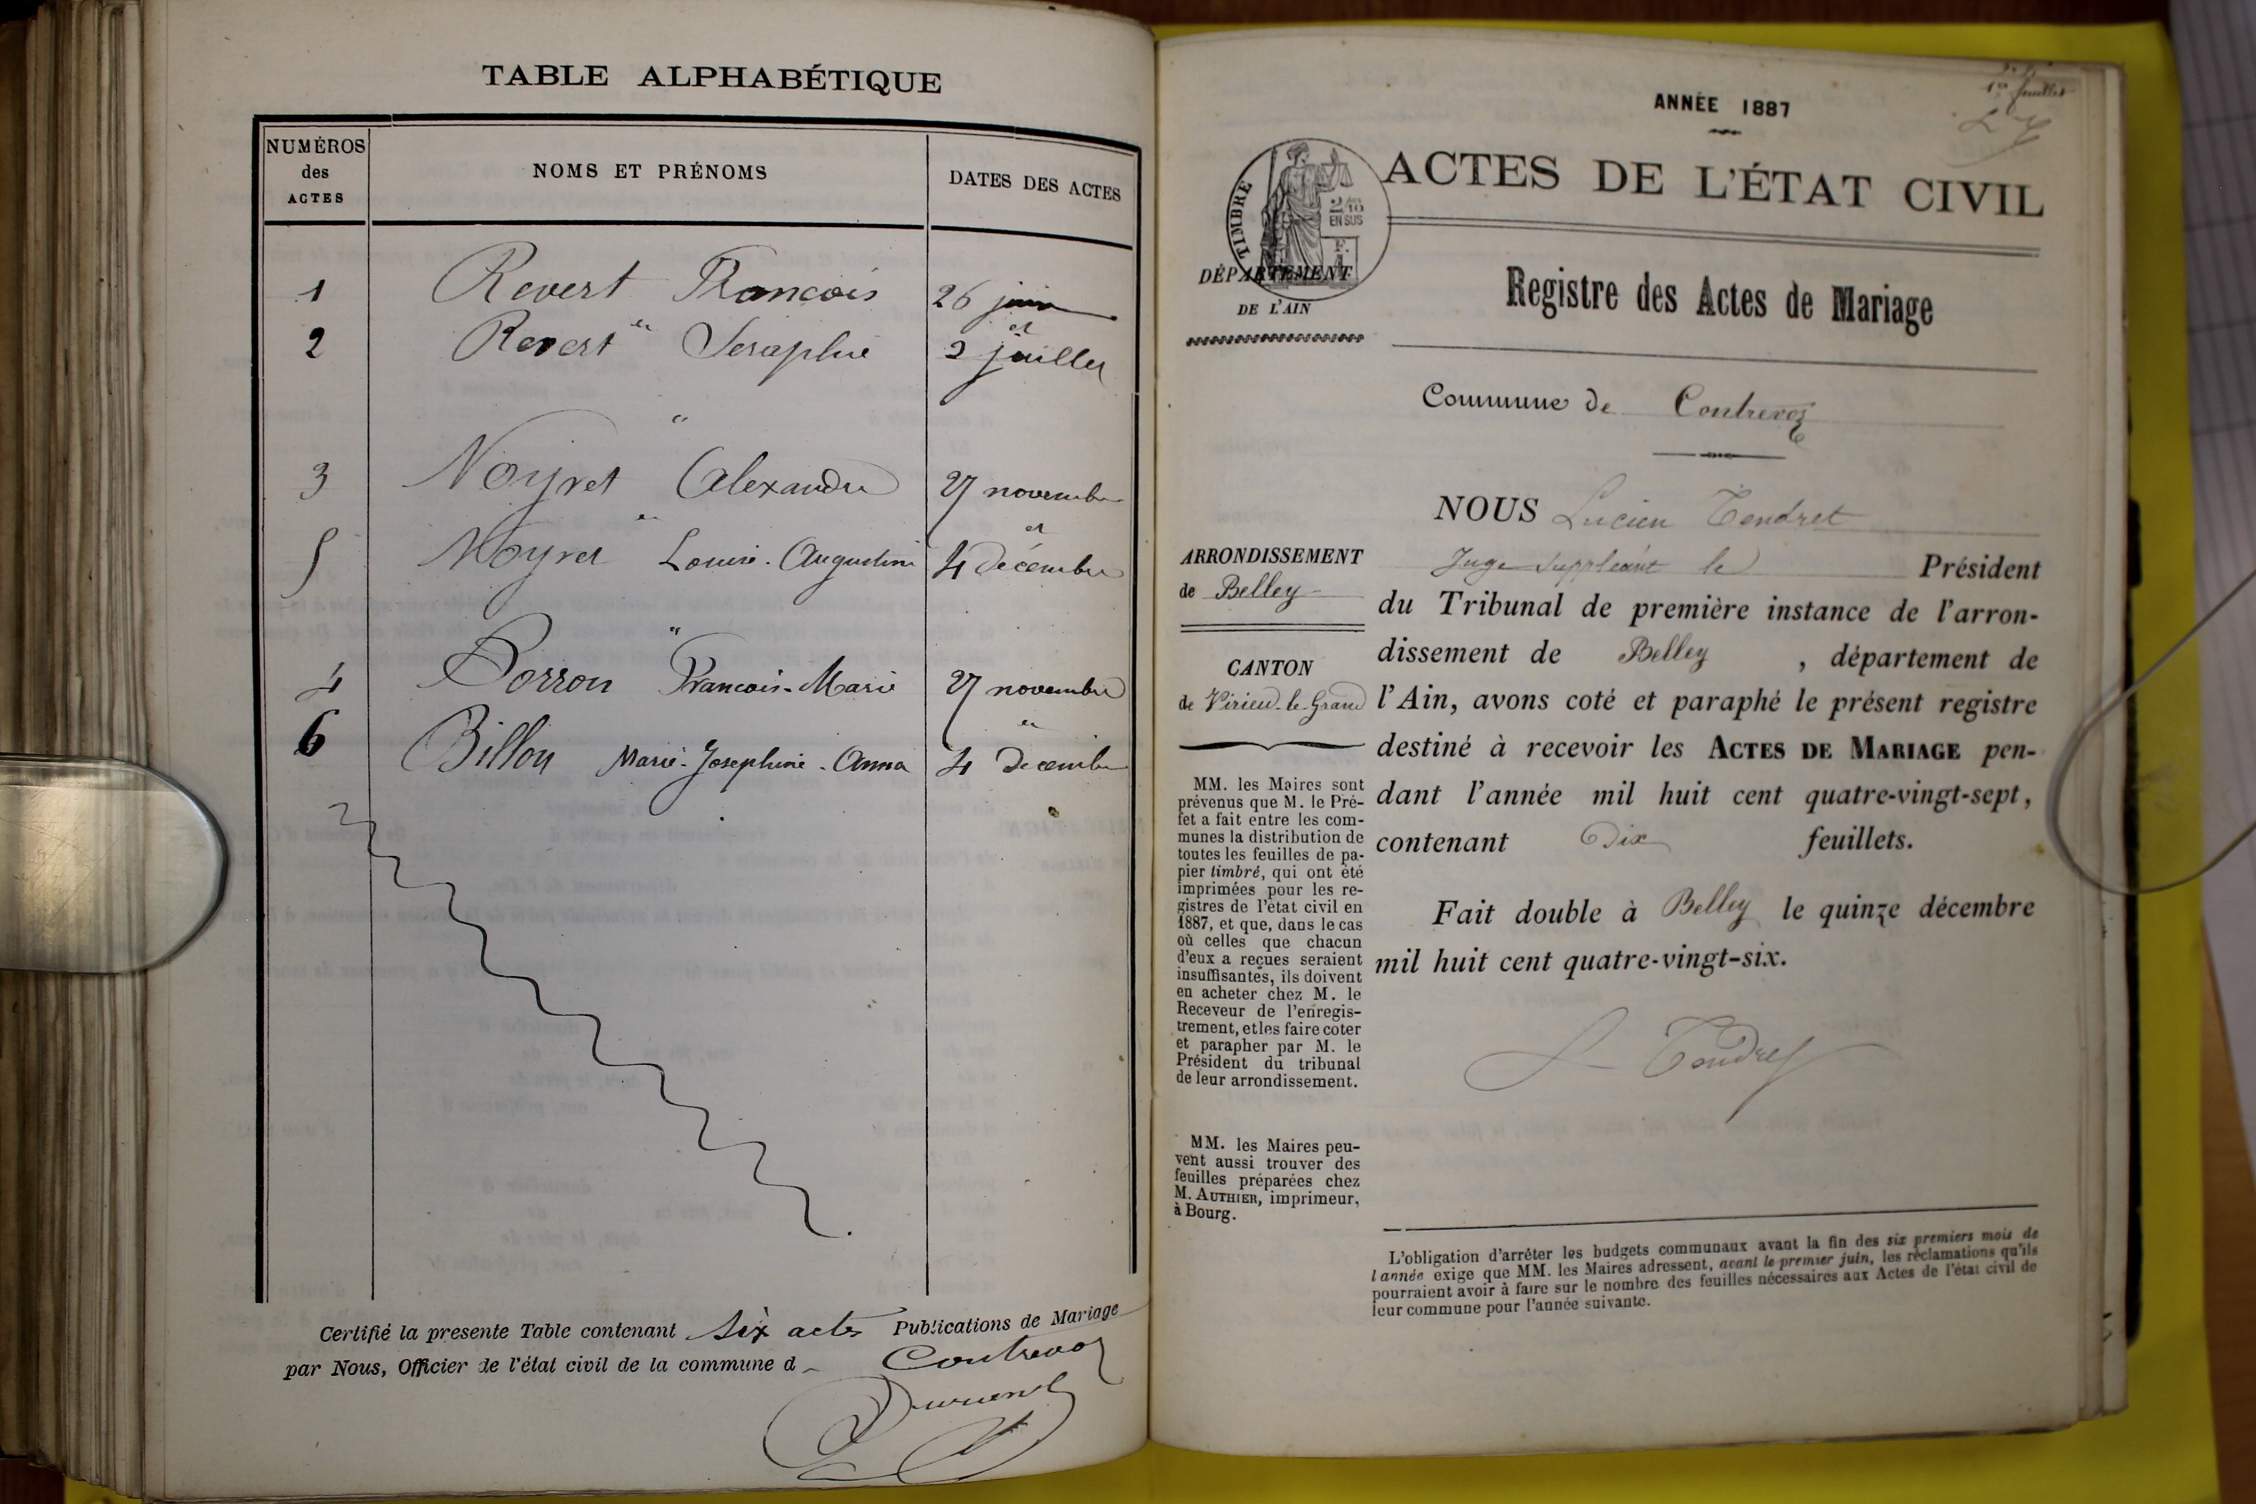 TABLE ALPHABÉTIQUE
NUMÉROS des ACTES NOMS ET PRÉNOMS DATES DES ACTES
1 Revert François 26 juin
2 Revert en Seraphie 2 et juillet
"
3 Noyret Alexandre 27 novembre
5 Noyret en Louise-Augustine 4 et décembre
"
4 Porron François-Marie 27 novembre
6 Billon Marie-Josephine-Anna 4 décembre
Certifié la presente Table contenant six actes Publications de Mariage
par Nous, Officier de l'état civil de la commune d Contrevoz
1er feuillet
ANNÉE 1887
TIMBRE
2/10 EN SUS
ACTES DE L'ÉTAT CIVIL
DÉPARTEMENT
DE L'AIN
Registre des Actes de Mariage
Commune de Contrevoz
ARRONDISSEMENT
de Belley
CANTON
de Virieu-le-Grand
MM. les Maires sont
prévenus que M. le Pré-
fet a fait entre les com-
munes la distribution de
toutes les feuilles de pa-
pier timbré, qui ont été
imprimées pour les re-
gistres de l'état civil en
1887, et que, dans le cas
où celles que chacun
d'eux a reçues seraient
insuffisantes, ils doivent
en acheter chez M. le
Receveur de l'enregis-
trement, et les faire coter
et parapher par M. le
Président du tribunal
de leur arrondissement.
MM. les Maires peu-
vent aussi trouver des
feuilles préparées chez
M. AUTHIER, imprimeur,
à Bourg.
NOUS Lucien Tendret
Juge suppléant le Président
du Tribunal de première instance de l'arron-
dissement de Belley, département de
l'Ain, avons coté et paraphé le présent registre
destiné à recevoir les ACTES DE MARIAGE pen-
dant l'année mil huit cent quatre-vingt-sept,
contenant Dix feuillets.
Fait double à Belley le quinze décembre
mil huit cent quatre-vingt-six.
L Tendret
L'obligation d'arrêter les budgets communaux avant la fin des six premiers mois de
l'année exige que MM. les Maires adressent, avant le premier juin, les réclamations qu'ils
pourraient avoir à faire sur le nombre des feuilles nécessaires aux Actes de l'état civil de
leur commune pour l'année suivante.